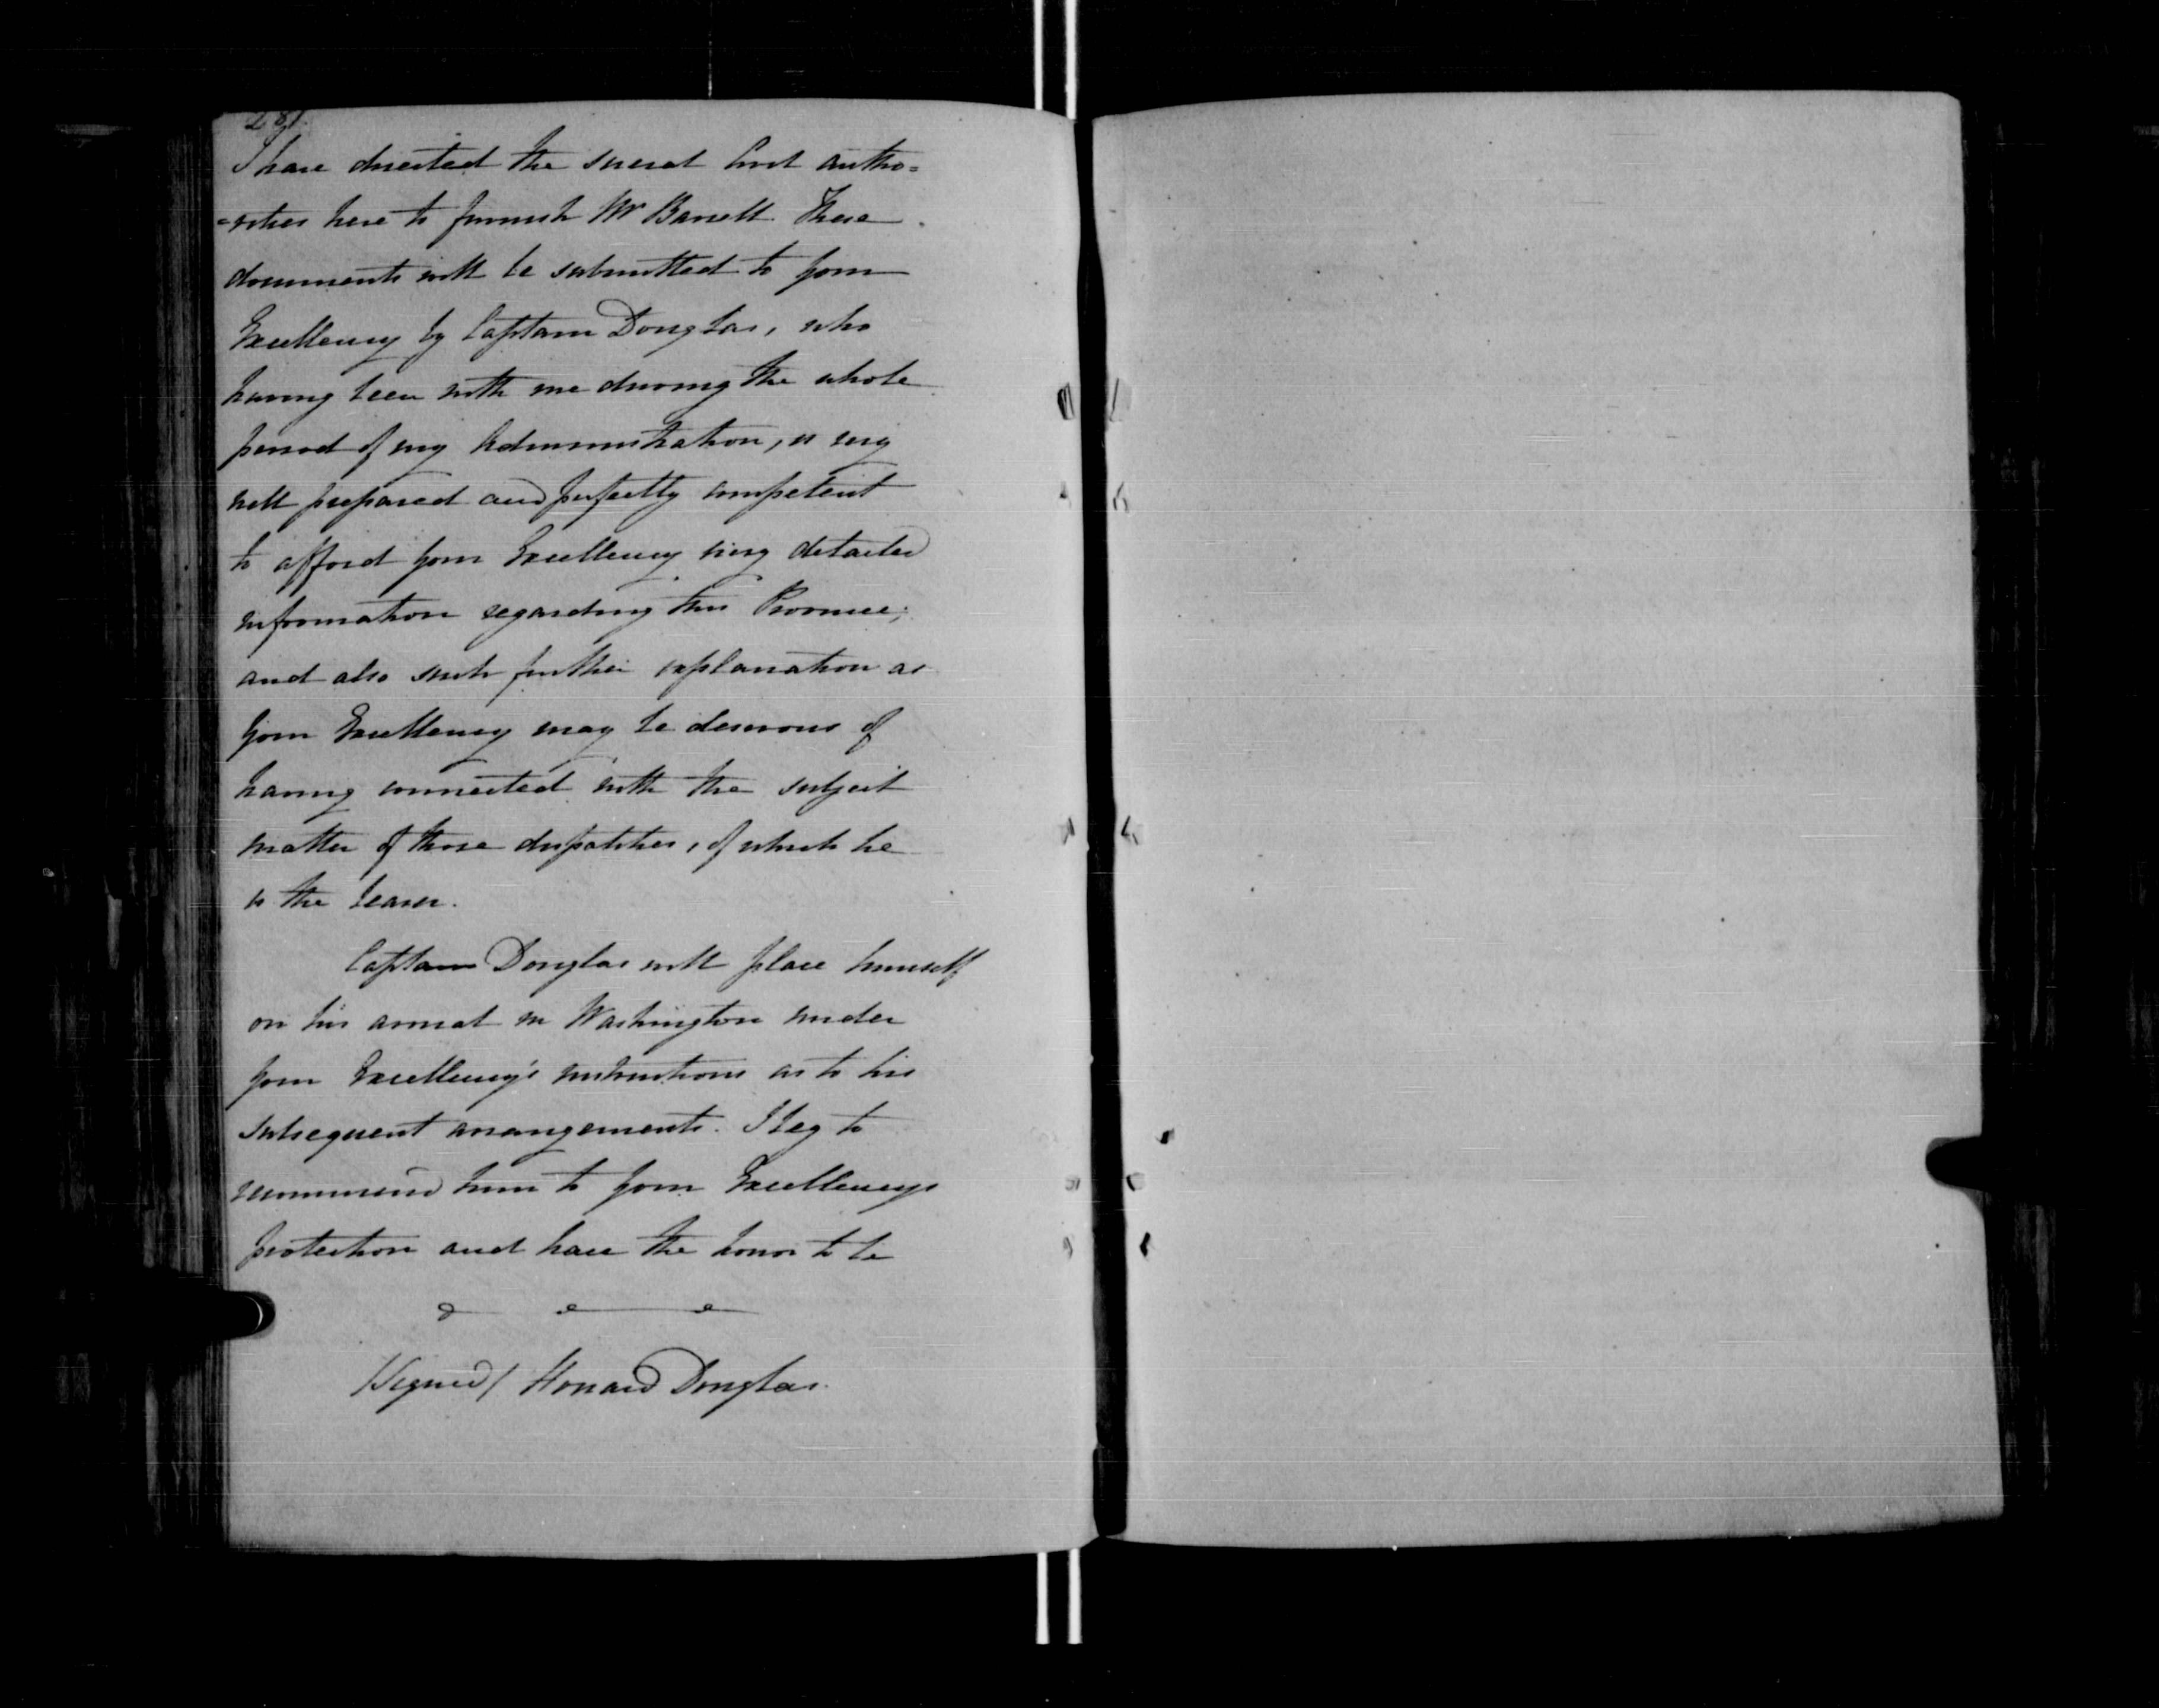 281.
I have directed the several Civil autho=
=rities here to furnish Mr Barrell. These
documents will be submitted to your
Excellency by Captain Douglas, who
having been with me during the whole
period of my Administration, is very
well prepared and perfectly competent
to afford your Excellency very detailed
information regarding this Province;
and also such further explanation as
your Excellency may be desirous of
having connected with the subject
matter of those dispatches, of which he
is the bearer.
Captain Douglas will place himself
on his arrival in Washington under
your Excellency's instructions as to his
subsequent arrangements. I beg to
recommend him to your Excellencys
protection and have the honor to be
/Signed/ Howard Douglas.